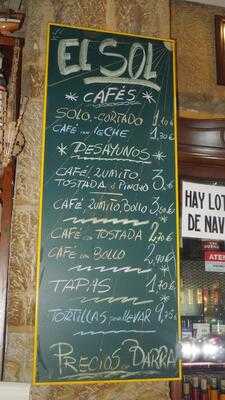 EL SOL
* CAFÉS *
SOLO-CORTADO 1,10€
CAFÉ CON LECHE 1,30€
* DESAYUNOS *
CAFÉ/ZUMITO,
TOSTADA ó PINCHO 3,€
CAFÉ ZUMITO, BOLLO 3,50€
CAFÉ CON TOSTADA 2,70€
CAFÉ CON BOLLO 2,90€
TAPAS 1,70€
TORTILLAS PARA LLEVAR 9,75
PRECIOS BARRA
HAY LOT
DE NAV
ATEN